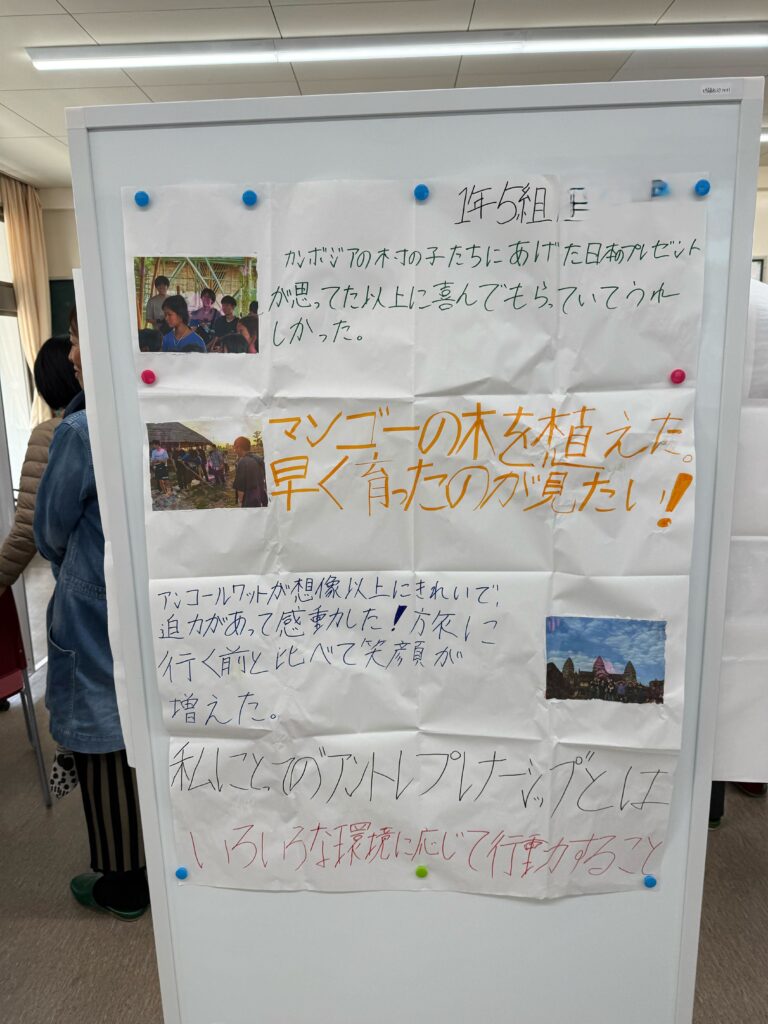 1年5組
カンボジアの村の子たちにあげた日本のプレゼント
が思ってた以上に喜んでもらっていてうれ
しかった。
マンゴーの木を植えた。
早く育ったのが見たい!
アンコールワットが想像以上にきれいで、
迫力があって感動した!旅に
行く前と比べて笑顔が
増えた。
私にとってのアントレプレナーシップとは
いろいろな環境に応じて行動力すること